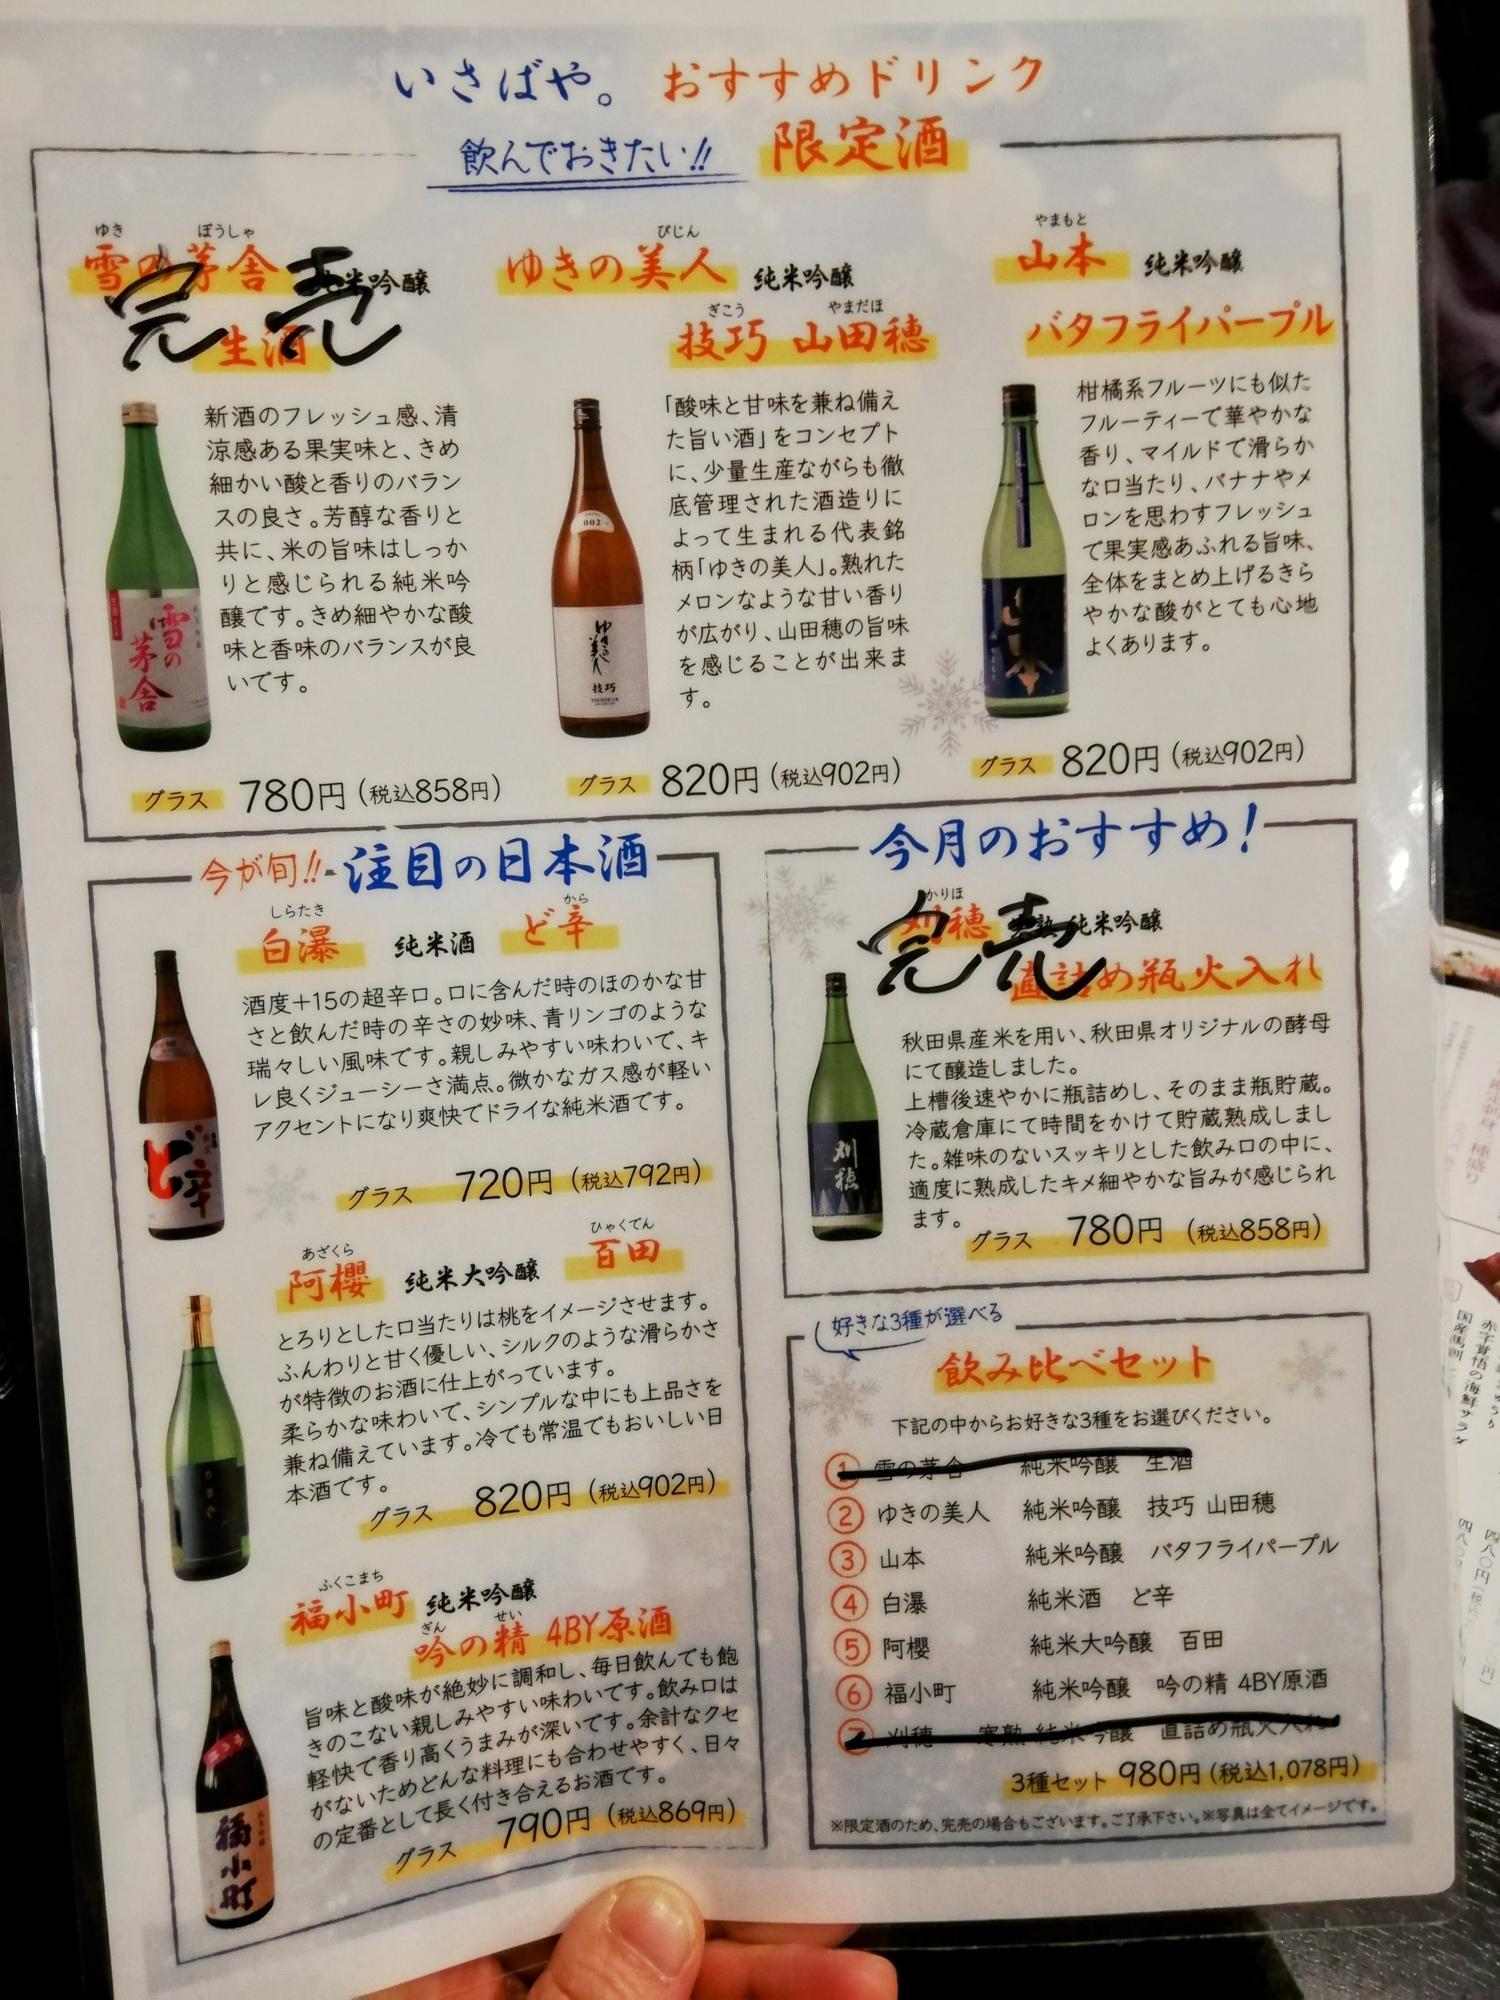 いさばや。 おすすめドリンク
飲んでおきたい!! 限定酒
ゆき ぼうしゃ
雪の茅舎 純米吟醸
生酒
完売
新酒のフレッシュ感、清
涼感ある果実味と、きめ
細かい酸と香りのバラン
スの良さ。芳醇な香りと
共に、米の旨味はしっか
りと感じられる純米吟
醸です。きめ細やかな酸
味と香味のバランスが良
いです。
雪の
茅舎
グラス 780円(税込858円)
びじん
ゆきの美人 純米吟醸
ぎこう やまだほ
技巧 山田穂
「酸味と甘味を兼ね備え
た旨い酒」をコンセプト
に、少量生産ながらも徹
底管理された酒造りに
よって生まれる代表銘
柄「ゆきの美人」。熟れた
メロンなような甘い香り
が広がり、山田穂の旨味
を感じることが出来ま
す。
002
ゆきの美人
技巧
グラス 820円(税込902円)
やまもと
山本 純米吟醸
バタフライパープル
柑橘系フルーツにも似た
フルーティーで華やかな
香り、マイルドで滑らか
な口当たり、バナナやメ
ロンを思わすフレッシュ
で果実感あふれる旨味、
全体をまとめ上げるきら
やかな酸がとても心地
よくあります。
山本
グラス 820円(税込902円)
今が旬!! 注目の日本酒
しらたき から
白瀑 純米酒 ど辛
酒度+15の超辛口。口に含んだ時のほのかな甘
さと飲んだ時の辛さの妙味、青リンゴのような
瑞々しい風味です。親しみやすい味わいで、キ
レ良くジューシーさ満点。微かなガス感が軽い
アクセントになり爽快でドライな純米酒です。
ど辛
グラス 720円(税込792円)
あざくら ひゃくでん
阿櫻 純米大吟醸 百田
とろりとした口当たりは桃をイメージさせます。
ふんわりと甘く優しい、シルクのような滑らかさ
が特徴のお酒に仕上がっています。
柔らかな味わいで、シンプルな中にも上品さを
兼ね備えています。冷でも常温でもおいしい日
本酒です。
グラス 820円(税込902円)
ふくこまち
福小町 純米吟醸
ぎん せい
吟の精 4BY原酒
旨味と酸味が絶妙に調和し、毎日飲んでも飽
きのこない親しみやすい味わいです。飲み口は
軽快で香り高くうまみが深いです。余計なクセ
がないためどんな料理にも合わせやすく、日々
の定番として長く付き合えるお酒です。
福小町
グラス 790円(税込869円)
今月のおすすめ!
かりほ
刈穂 寒熟 純米吟醸
直詰め瓶火入れ
完売
秋田県産米を用い、秋田県オリジナルの酵母
にて醸造しました。
上槽後速やかに瓶詰めし、そのまま瓶貯蔵。
冷蔵倉庫にて時間をかけて貯蔵熟成しまし
た。雑味のないスッキリとした飲み口の中に、
適度に熟成したキメ細やかな旨みが感じられ
ます。
刈穂
グラス 780円(税込858円)
好きな3種が選べる
飲み比べセット
下記の中からお好きな3種をお選びください。
① 雪の茅舎 純米吟醸 生酒
② ゆきの美人 純米吟醸 技巧 山田穂
③ 山本 純米吟醸 バタフライパープル
④ 白瀑 純米酒 ど辛
⑤ 阿櫻 純米大吟醸 百田
⑥ 福小町 純米吟醸 吟の精 4BY原酒
⑦ 刈穂 寒熟 純米吟醸 直詰め瓶火入れ
3種セット 980円(税込1,078円)
※限定酒のため、完売の場合もございます。ご了承下さい。※写真は全てイメージです。